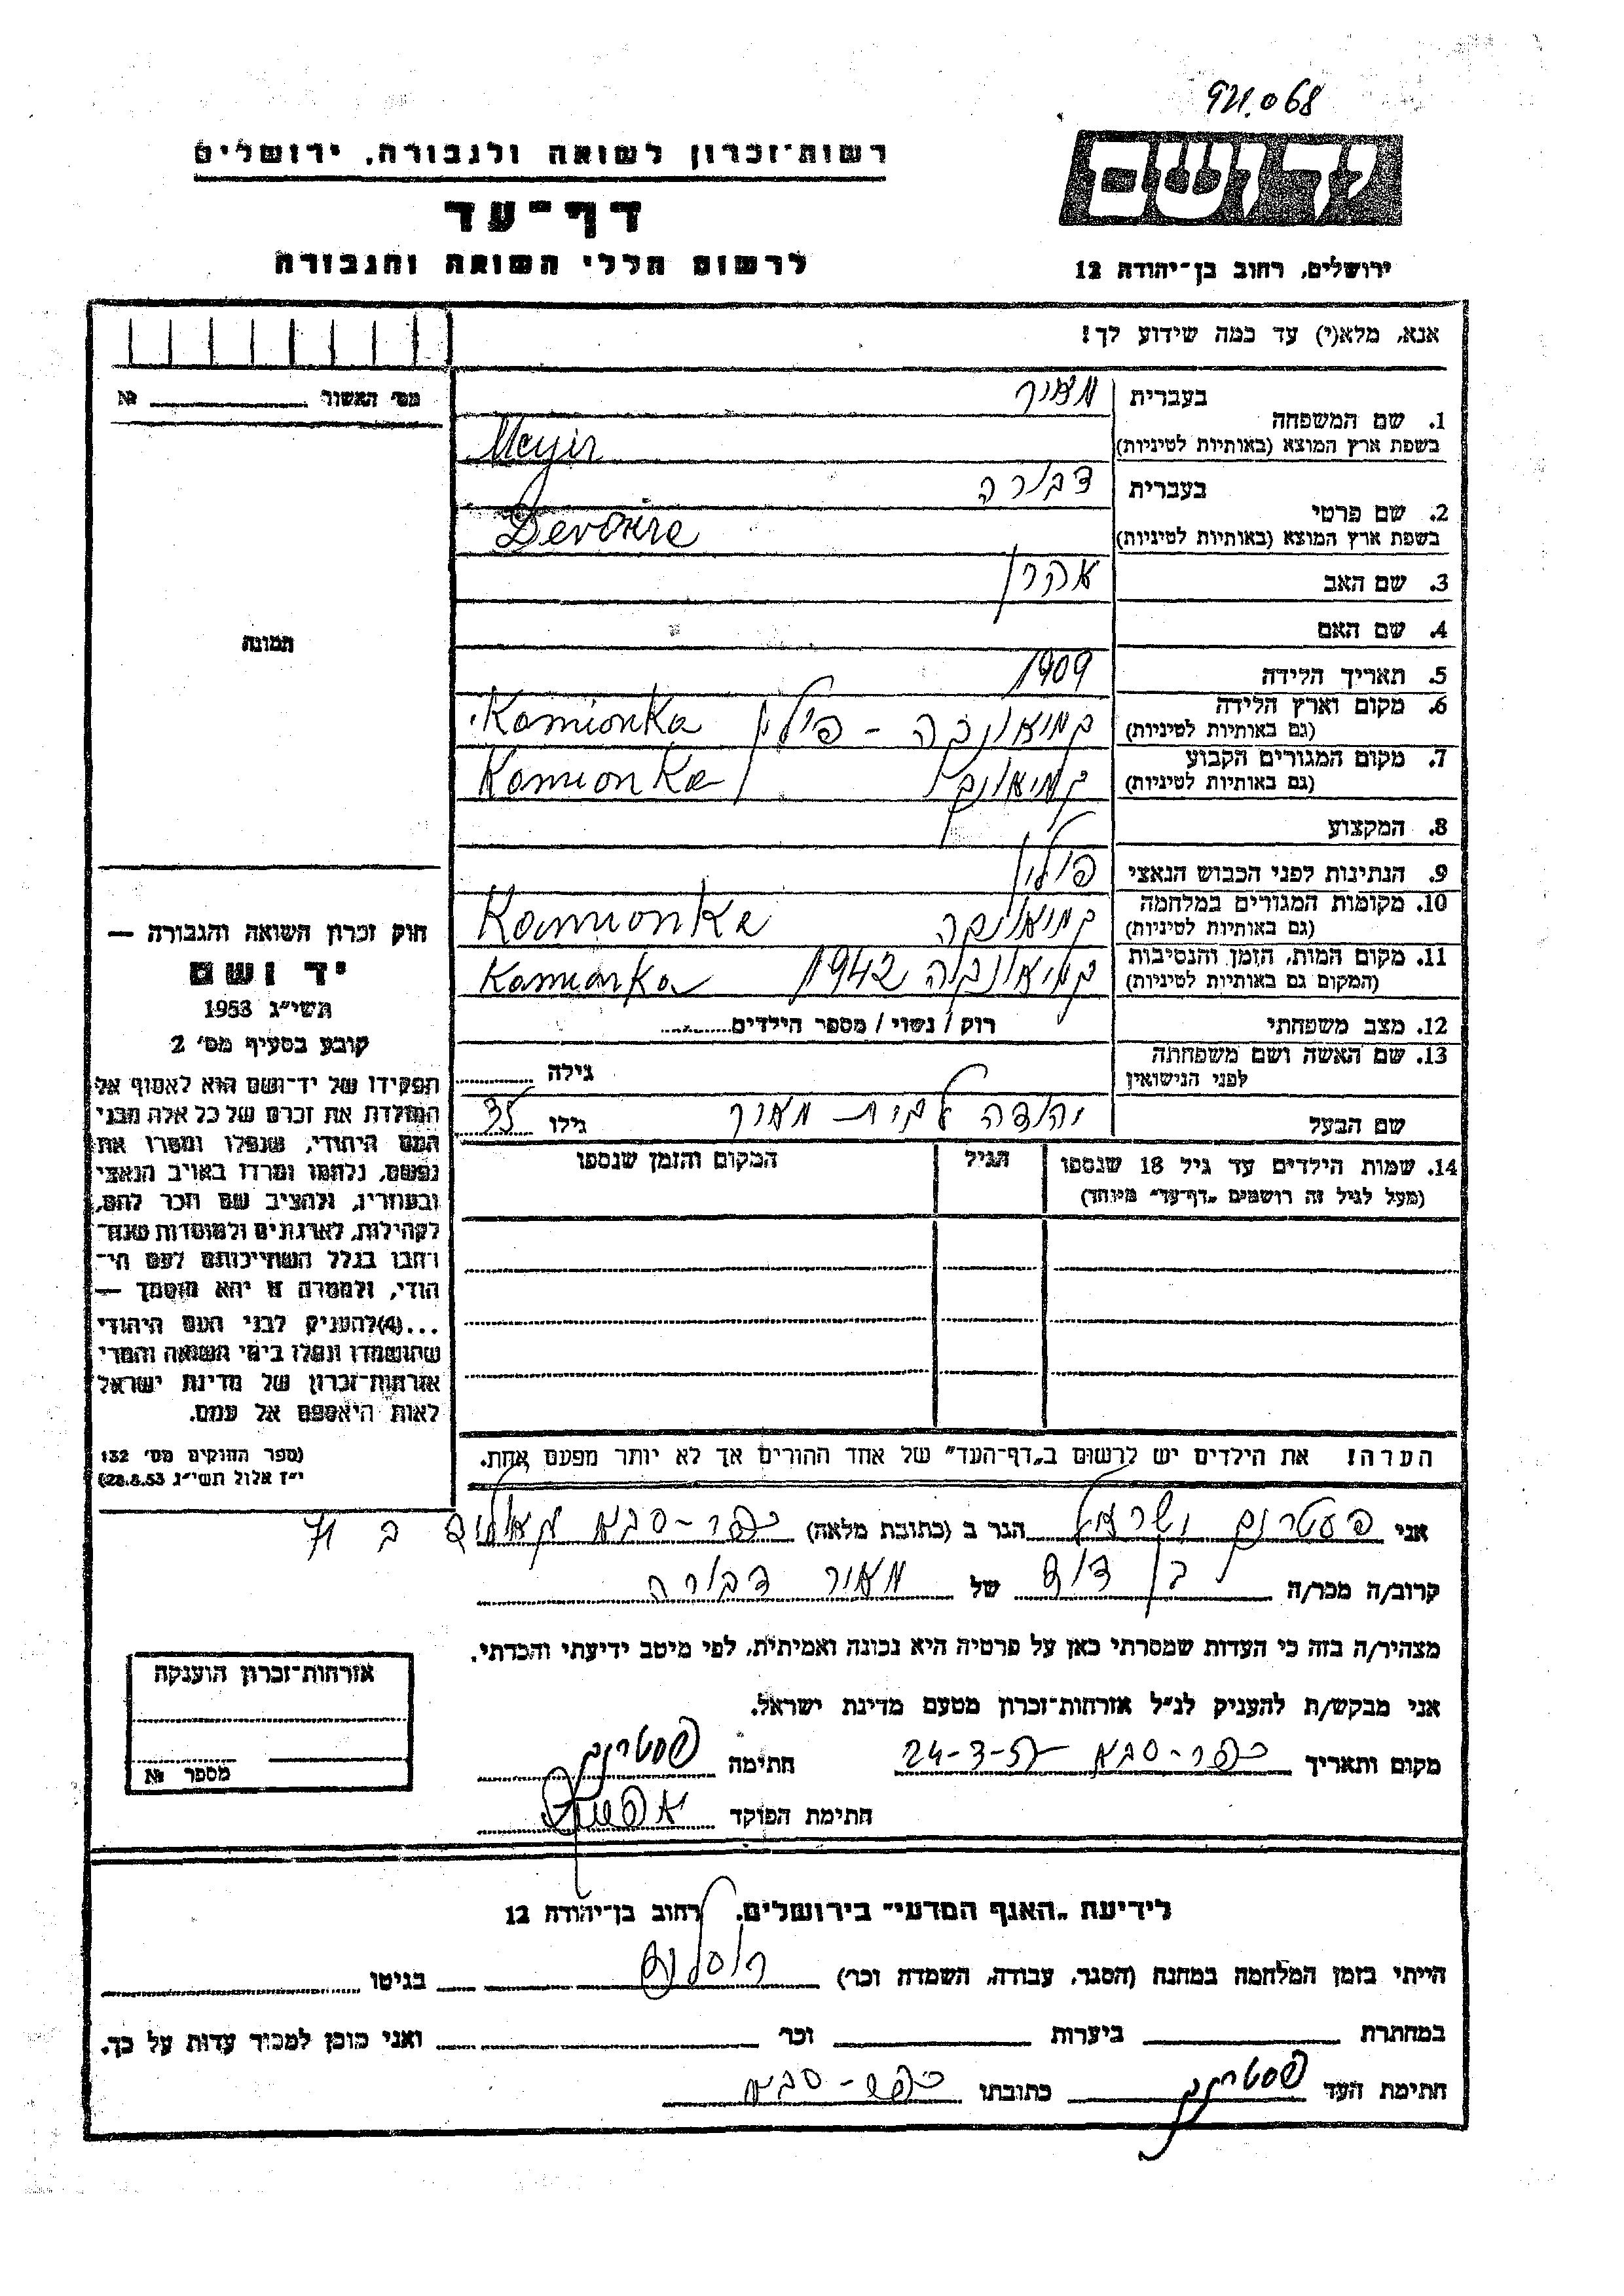 921.068
רשות־זכרון לשואה ולגבורה, ירושלים
יד ושם
דף־עד
לרשום חללי השואה והגבורה
ירושלים, רחוב בן־יהודה 12
אנא, מלא(י) עד כמה שידוע לך!
מס' האשור № 
1. שם המשפחה
בעברית מאיר
בשפת ארץ המוצא (באותיות לטיניות) Meyir
2. שם פרטי
בעברית דבורה
בשפת ארץ המוצא (באותיות לטיניות)
3. שם האב אהרן
4. שם האם
תמונה
5. תאריך הלידה 1909
6. מקום וארץ הלידה
(גם באותיות לטיניות) קמיאונקה - פולין Kamionka
7. מקום המגורים הקבוע
(גם באותיות לטיניות) Kamionka
8. המקצוע
9. הנתינות לפני הכבוש הנאצי פולין
10. מקומות המגורים במלחמה
(גם באותיות לטיניות) קמיאונקה Kamionka
11. מקום המות, הזמן והנסיבות
(המקום גם באותיות לטיניות) קמיאונקה 1942 Kamionka
12. מצב משפחתי רוק / נשוי / מספר הילדים
13. שם האשה ושם משפחתה
לפני הנישואין גילה
שם הבעל יהודה מאיר גילו 35
14. שמות הילדים עד גיל 18 שנספו הגיל המקום והזמן שנספו
(מעל לגיל זה רושמים „דף־עד" מיוחד)
חוק זכרון השואה והגבורה —
יד ושם
תשי"ג 1953
קובע בסעיף מס' 2
תפקידו של יד־ושם הוא לאסוף אל
המולדת את זכרם של כל אלה מבני
העם היהודי, שנפלו ומסרו את
נפשם, נלחמו ומרדו באויב הנאצי
ובעוזריו, ולהציב שם וזכר להם,
לקהילות, לארגונים ולמוסדות שנח־
רבו בגלל השתייכותם לעם הי־
הודי, ולמטרה זו יהא מוסמך —
...(4)להעניק לבני העם היהודי
שהושמדו ונפלו בימי השואה והמרי
אזרחות־זכרון של מדינת ישראל
לאות היאספם אל עמם.
(ספר החוקים מס' 132
י"ז אלול תשי"ג 28.8.53)
הערה! את הילדים יש לרשום ב„דף־העד" של אחד ההורים אך לא יותר מפעם אחת.
אני ישראל הגר ב (כתובת מלאה) כפר-סבא
קרוב/ה מכר/ה בן דוד של מאיר דבורה
מצהיר/ה בזה כי העדות שמסרתי כאן על פרטיה היא נכונה ואמיתית, לפי מיטב ידיעתי והכרתי.
אני מבקש/ת להעניק לנ"ל אזרחות־זכרון מטעם מדינת ישראל.
מקום ותאריך כפר-סבא 24-3-57 חתימה
חתימת הפוקד
אזרחות־זכרון הוענקה
מספר №
לידיעת „האגף המדעי" בירושלים, רחוב בן־יהודה 12
הייתי בזמן המלחמה במחנה (הסגר, עבודה, השמדה וכר) בגיטו
במחתרת ביערות וכר ואני מוכן למסור עדות על כך.
חתימת העד כתובתו כפר-סבא